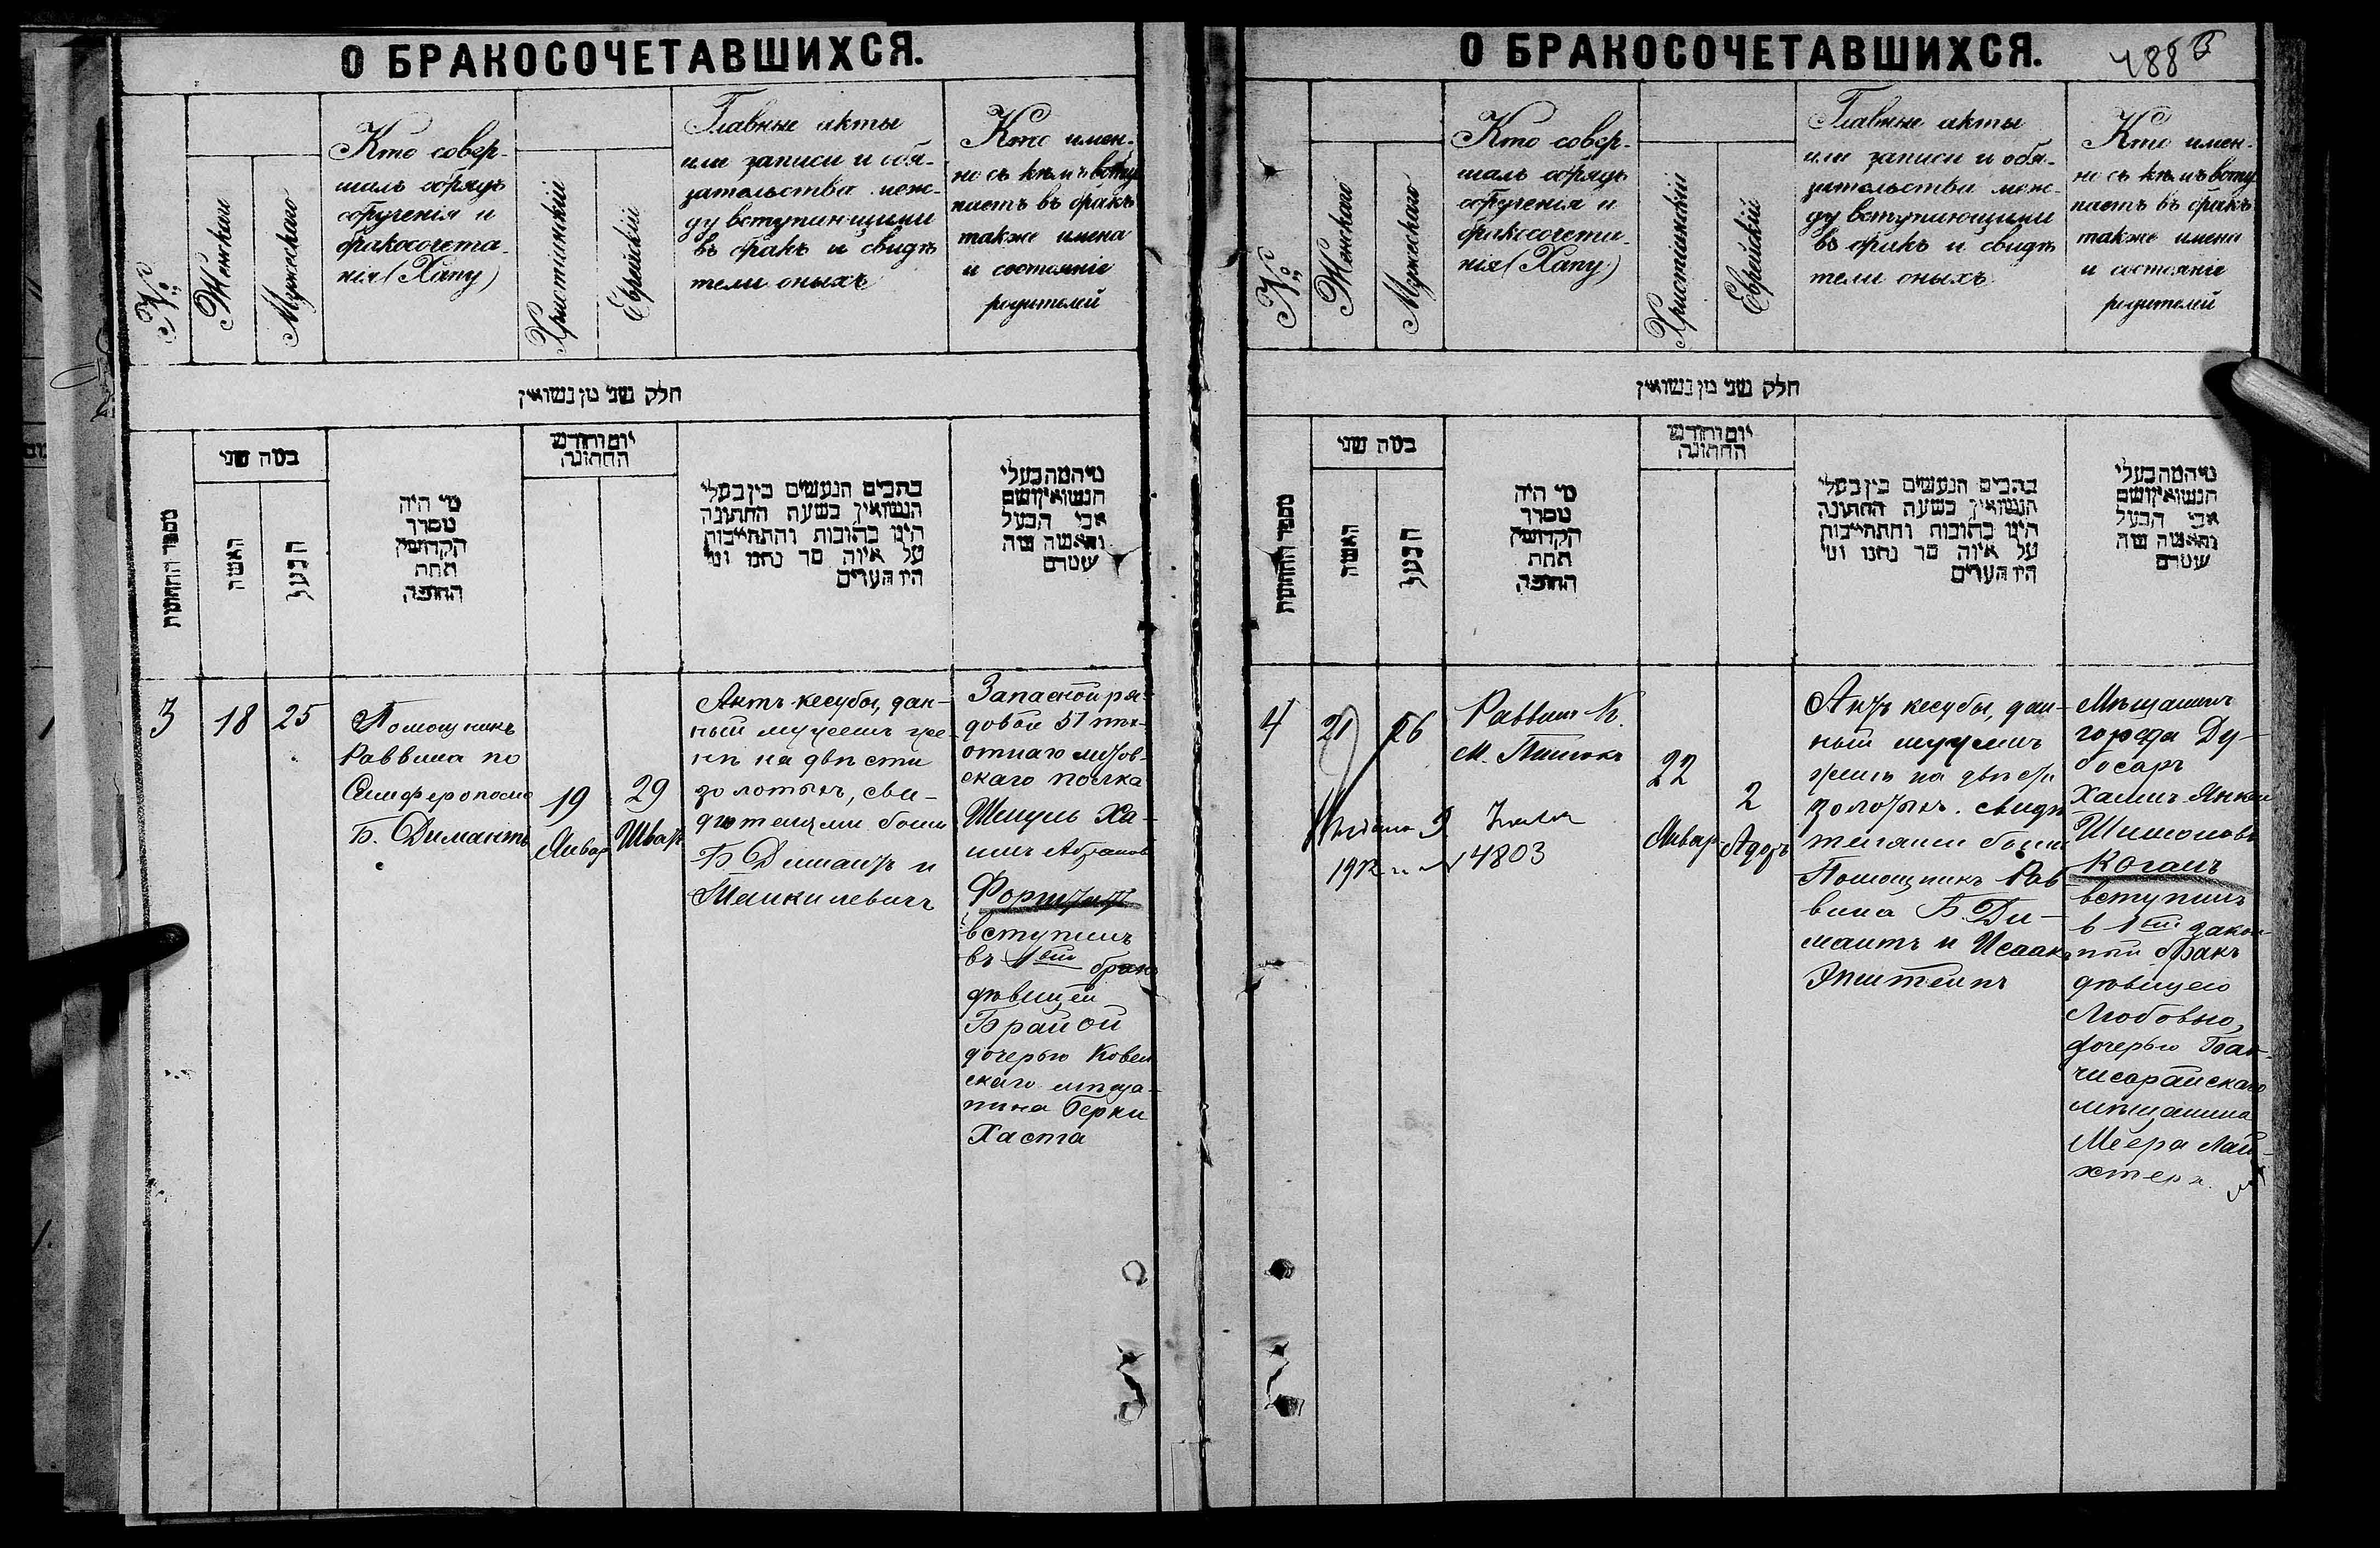 О БРАКОСОЧЕТАВШИХСЯ.
№
Женскаго
Мужескаго
Кто совер-
шалъ обрядъ
обрученія и
бракосочета-
нія (Хупу)
Христіанскій
Еврейскій
Главные акты
или записи и обя-
зательства меж-
ду вступающими
въ бракъ и свидѣ
тели оныхъ
Кто имен-
но съ кѣмъ всту
паетъ въ бракъ
также имена
и состояніе
родителей
חלק שני מן נשואין
מספר החתונות
כמה שני
האשה
הבעל
מי היה
מסדר
הקדושין
תחת
החופה
יום וחודש
החתונה
כתבים הנעשים בין בעלי
הנשואין בשעת החתונה
היינו כתובות והתחייבות
על איזה סך נתנו ומי
היו העדים
מי המה בעלי
הנשואין ושם
אבי הבעל
והאשה מה
שמם
3
18
25
Помощникъ
Раввина по
Симферополю
Б. Димантъ
19
Январ
29
Шват
Актъ кесубы, дан-
ный мужемъ же-
нѣ на двѣсти
золотыхъ, сви-
дѣтелями были
Б Димантъ и
Запасной ря-
довой 51 пѣх-
отнаго литов-
скаго полка
Шмуль Ха-
имъ Абрамов
вступилъ
въ 1ый бракъ
дѣвицей
Брайной
дочерью Ковел
скаго мѣща-
нина Берки
Хаста
О БРАКОСОЧЕТАВШИХСЯ.
488
№
Женскаго
Мужескаго
Кто совер-
шалъ обрядъ
обрученія и
бракосочета-
нія (Хупу)
Христіанскій
Еврейскій
Главные акты
или записи и обя-
зательства меж-
ду вступающими
въ бракъ и свидѣ
тели оныхъ
Кто имен-
но съ кѣмъ всту
паетъ въ бракъ
также имена
и состояніе
родителей
חלק שני מן נשואין
מספר החתונות
כמה שני
האשה
הבעל
מי היה
מסדר
הקדושין
תחת
החופה
יום וחודש
החתונה
כתבים הנעשים בין בעלי
הנשואין בשעת החתונה
היינו כתובות והתחייבות
על איזה סך נתנו ומי
היו העדים
מי המה בעלי
הנשואין ושם
אבי הבעל
והאשה מה
שמם
4
21
26
Раввинъ
4803
22
Январ
2
Адаръ
Актъ кесубы, дан-
ный мужемъ
женѣ на двѣсти
золотыхъ. свидѣ
телями были
Помощникъ Рав
вина Б. Ди-
мантъ и Исаакъ
Эпштейнъ
Мѣщанинъ
города Ду-
босаръ
Хаимъ Янкель
Шимоновъ
Коганъ
вступилъ
в 1ый закон-
ный бракъ
дѣвицею
Любовью,
дочерью Бах-
чисарайскаго
мѣщанина
Меера Лай-
хтера